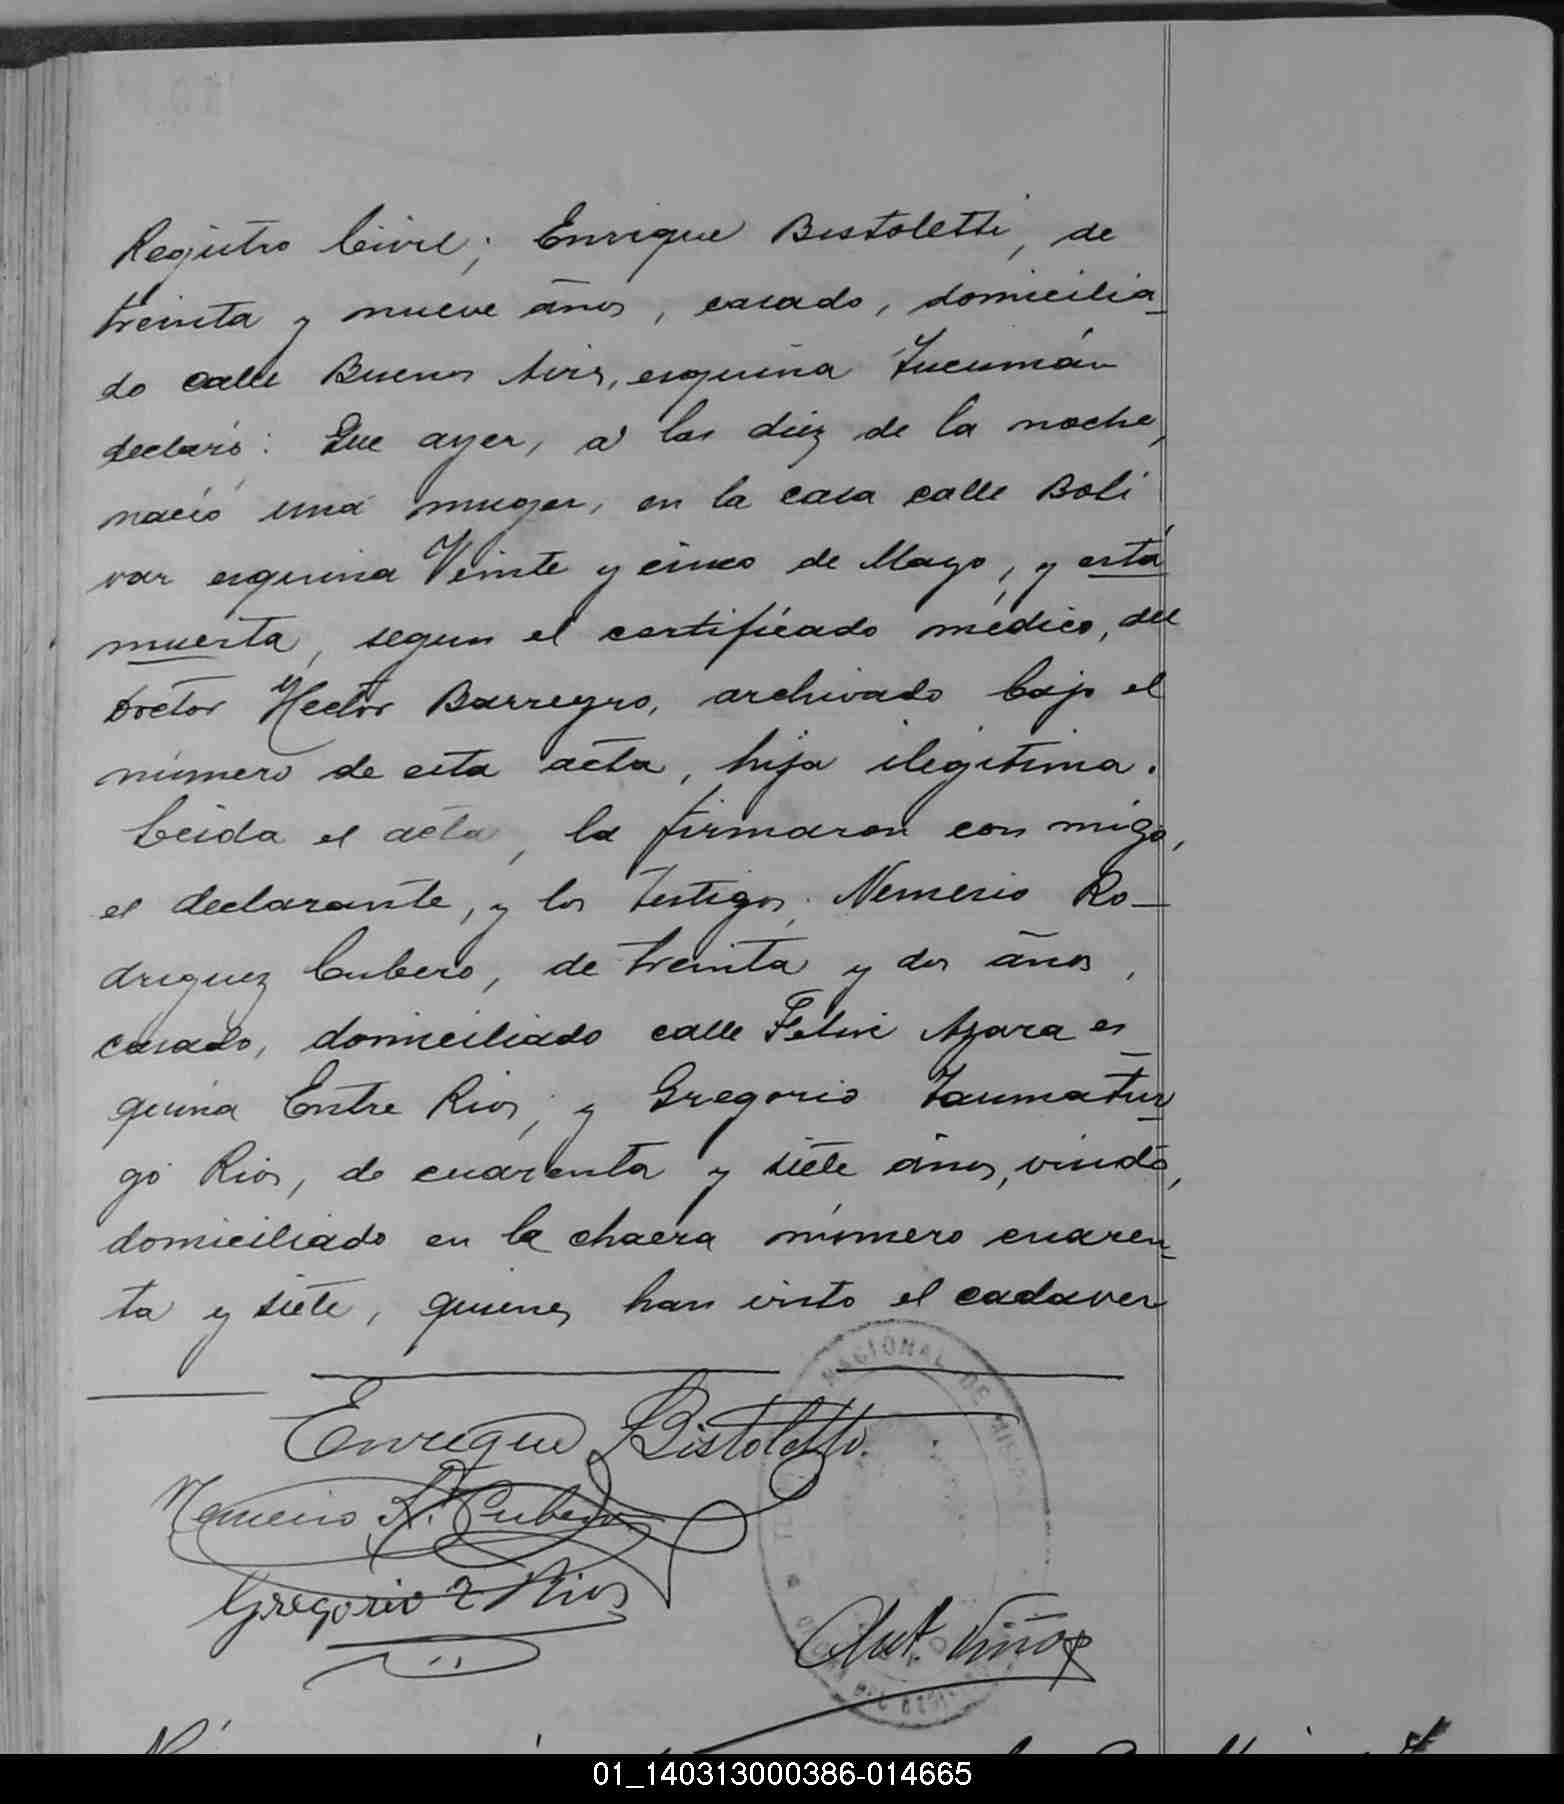 Registro Civil; Enrique Bistoletti, de
treinta y nueve años, casado, domicilia-
do calle Buenos Aires, esquina Tucumán
declaró: Que ayer, a las diez de la noche,
nació una muger, en la casa calle Boli
var esquina Veinte y cinco de Mayo, y está
muerta, segun el certificado médico, del
Doctor Hector Barreyro, archivado bajo el
número de esta acta, hija ilegitima.
Leida el acta, la firmaron con migo,
el declarante, y los testigos, Nemesio Ro-
driguez Cubero, de treinta y dos años,
casado, domiciliado calle Felix Azara es
quina Entre Rios; y Gregorio Taumatur
go Rios, de cuarenta y siete años, viudo,
domiciliado en la chacra número cuaren-
ta y siete, quienes han visto el cadaver
NACIONAL DE
Enrique Bistoletti
Nemesio R. Cubero
Gregorio T Rios
Ant. Viñas
01_140313000386-014665